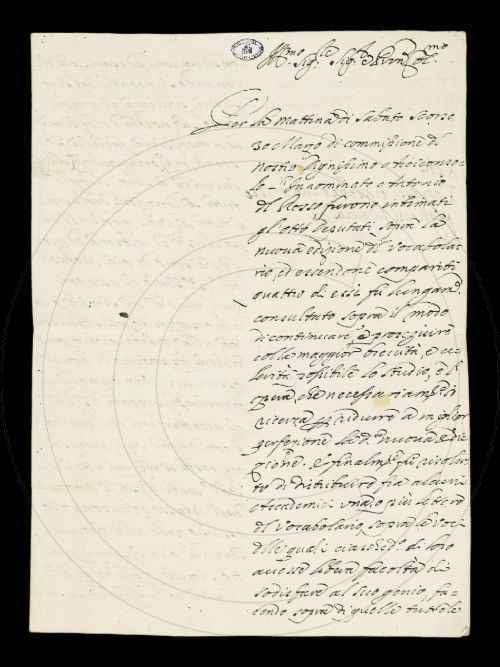 Ill.mo Sig.re Sig.r e Pron Col.mo
Per la mattina di Sabato scorso
30 Marzo di commissione del
nostro degnissimo Arciconso-
lo Innominato Antonio
del Rosso furono intimati
gl'otto Deputati sopra la
nuova edizione del Vocabola-
rio, ed essendone compariti
quattro di essi fu lungam.e
consultato sopra il modo
di continuare e proseguire
colla maggior brevità, e ce-
lerità possibile lo studio, e l'
opera, che necessariam.e si
ricerca per ridurre a miglior
perfezione la d.a nuova edi-
zione. E finalm.e fu risolu-
to di distribuire fra alcuni
Accademici una, o più lettere
del Vocabolario, sopra le voci
delle quali ciasched.o di loro
avesse libera facoltà di
sodisfare al suo genio, fa-
cendo sopra di quelle tutte le